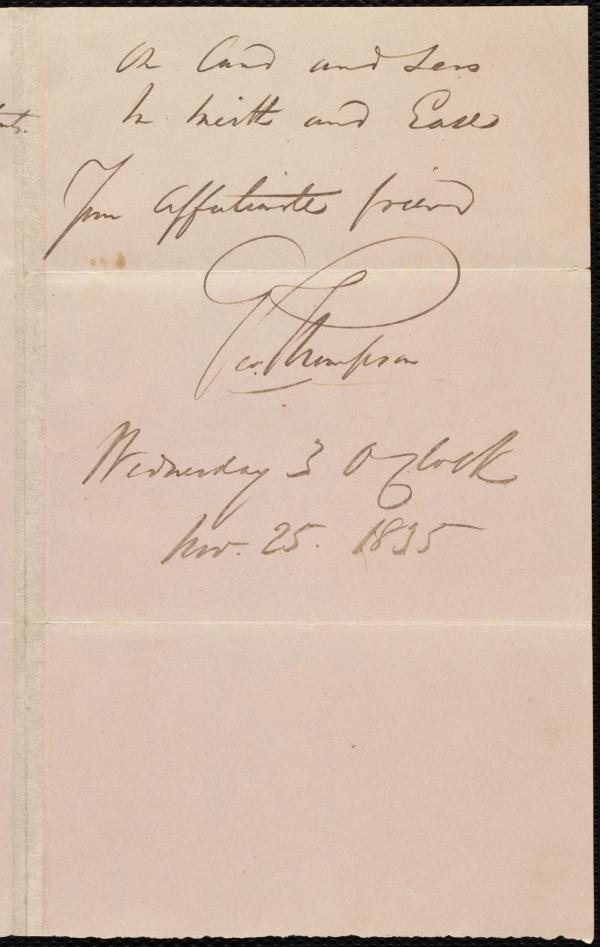 On Land and Seas
In North and East
Your affectionate friend
Geo. Thompson
Wednesday 3 O'clock
Nov. 25. 1835